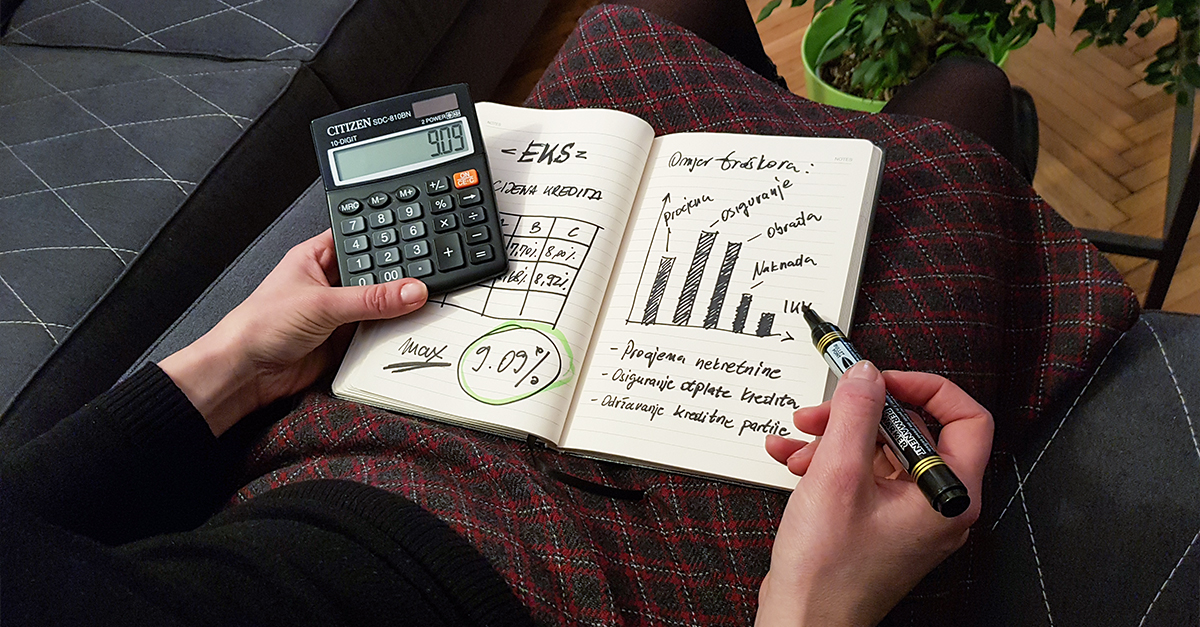 CITIZEN SDC-810BN
10-DIGIT
2 POWER
9.09
MRC M- M+ +/- ON C/CE
7 8 9 % →
4 5 6 × ÷
1 2 3 + -
0 00 . =
NOTES
- EKS =
CIJENA KREDITA
B C
7,70% 8,00%
8,92%
max 9.09%
NOTES
Omjer troškova:
procjena
osiguranje
Obrada
Naknada
1KM
- Procjena nekretnine
- Osiguranje otplate kredita
- Održavanje kreditne partije
PERMANENT